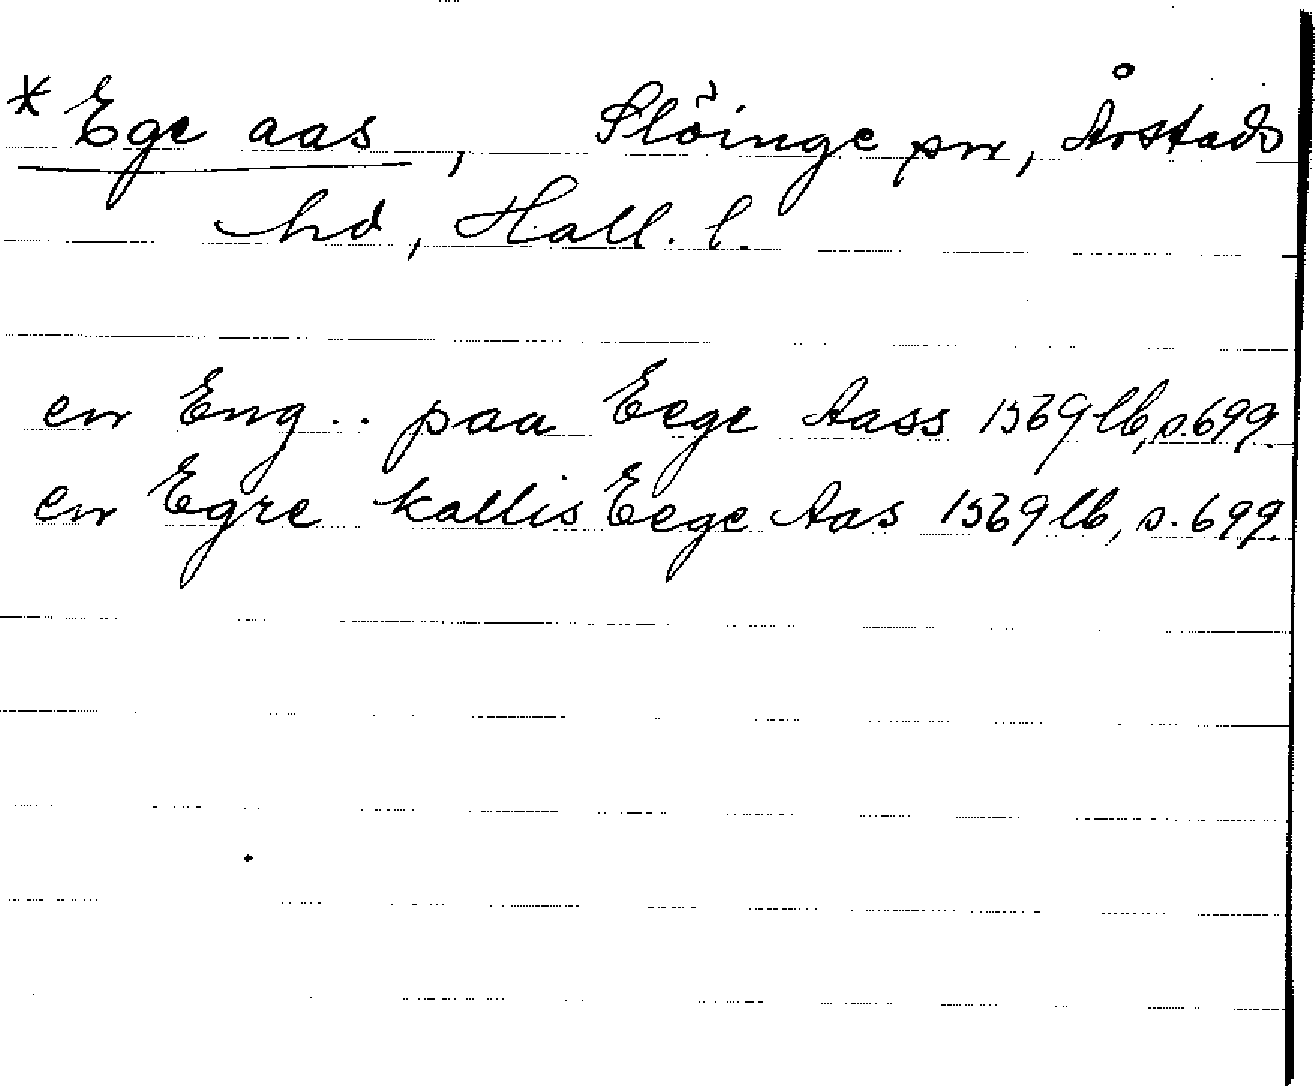 * Ege aas, Slöinge sn, Årstads
hd, Hall. l.
en Eng.. paa Eege Aass 1569 lb, s. 699.
en Egre kallis Eege Aas 1569 lb, s. 699.